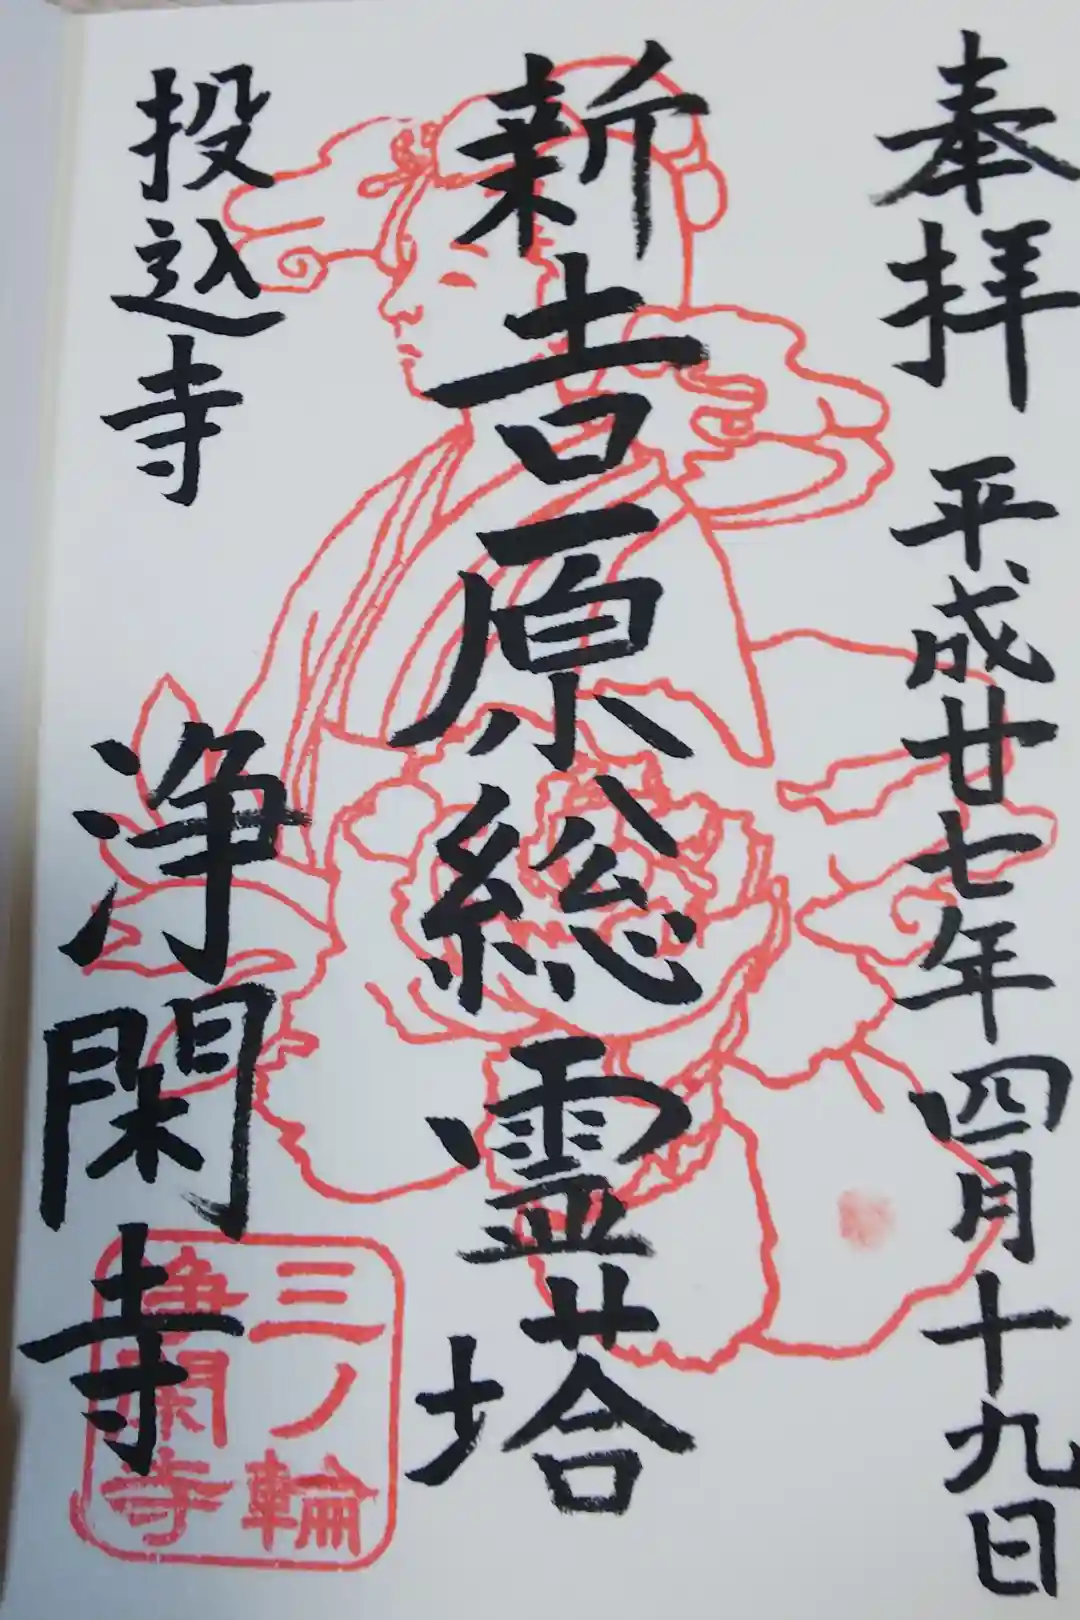 奉拝 平成廿七年四月十九日
新吉原総霊塔
投込寺 浄閑寺
三ノ輪
浄閑寺